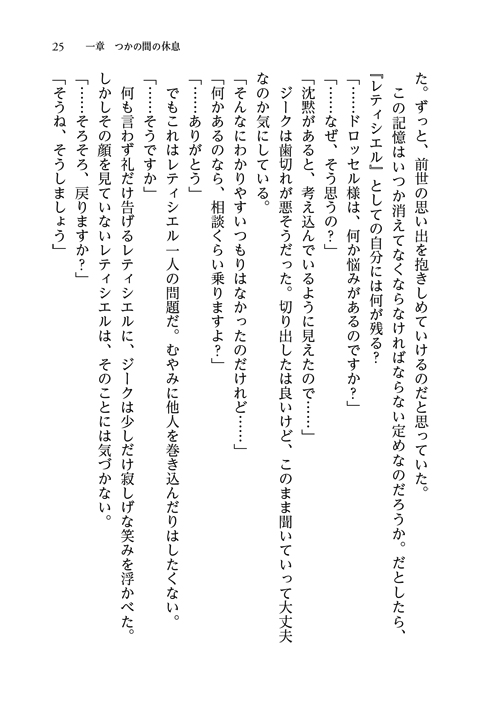 25　一章　つかの間の休息
た。ずっと、前世の思い出を抱きしめていけるのだと思っていた。
　この記憶はいつか消えてなくならなければならない定めなのだろうか。だとしたら、
『レティシエル』としての自分には何が残る？
「……ドロッセル様は、何か悩みがあるのですか？」
「……なぜ、そう思うの？」
「沈黙があると、考え込んでいるように見えたので……」
　ジークは歯切れが悪そうだった。切り出したは良いけど、このまま聞いていって大丈夫
なのか気にしている。
「そんなにわかりやすいつもりはなかったのだけれど……」
「何かあるのなら、相談くらい乗りますよ？」
「……ありがとう」
　でもこれはレティシエル一人の問題だ。むやみに他人を巻き込んだりはしたくない。
「……そうですか」
　何も言わず礼だけ告げるレティシエルに、ジークは少しだけ寂しげな笑みを浮かべた。
しかしその顔を見ていないレティシエルは、そのことには気づかない。
「……そろそろ、戻りますか？」
「そうね、そうしましょう」